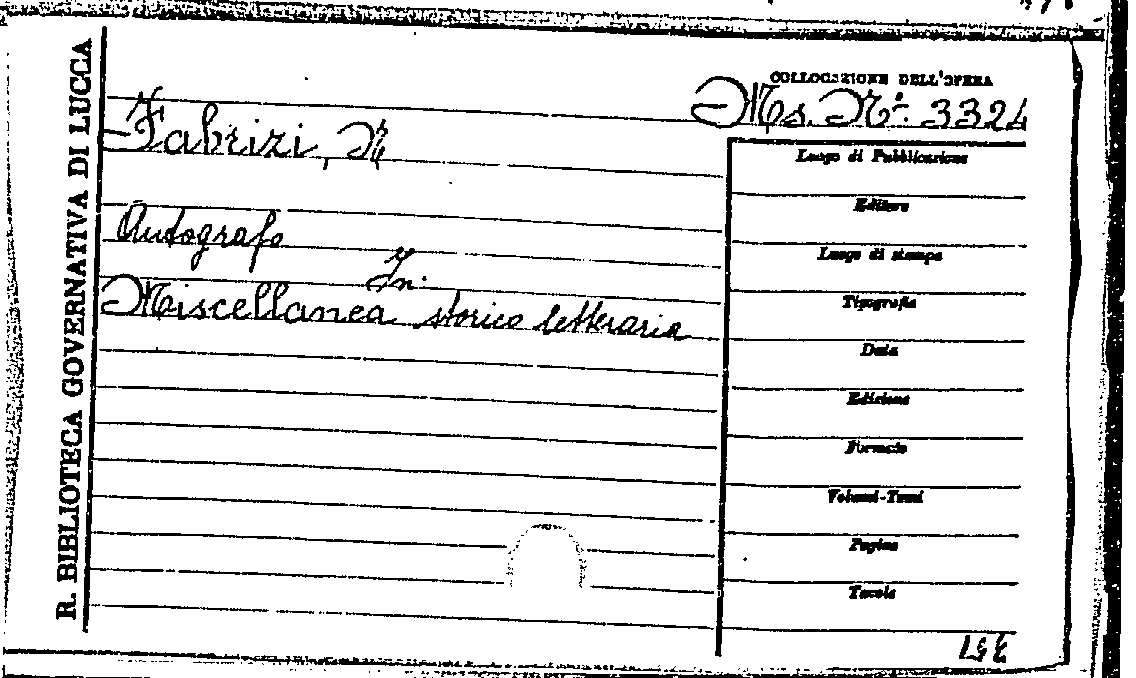 R. BIBLIOTECA GOVERNATIVA DI LUCCA
COLLOCAZIONE DELL'OPERA
Ms. N.º 3324
Fabrizi, N.
Autografo
In:
Miscellanea storico letteraria
Luogo di Pubblicazione
Editore
Luogo di stampa
Tipografia
Data
Edizione
Formato
Volumi-Tomi
Pagine
Tavole